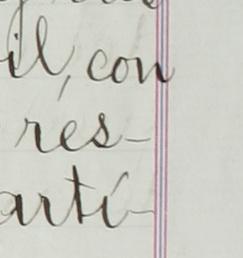 il, con
res-
arti-